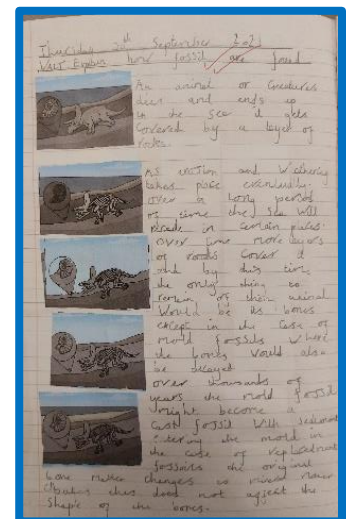 Thursday 2 th September 2021
WALT Explain how fossil are found
An animal or Creatures
dies and ends up
in the sea it gets
Covered by a layer of
rocks.
As and Weathering
takes place eventually
over a long period
of time the sea will
recede in certain
over time more layers
of cover it
and by this time
the only thing to
remain of their animal
Would be its bones
except in the case of
mold fossils where
the bones would also
be decayed
over thousands of
years the mold fossil
might become a
cast fossil with sediment
entering the mold in
the case of
the original
bone matter changes to
this does not affect the
Shape of the bones.